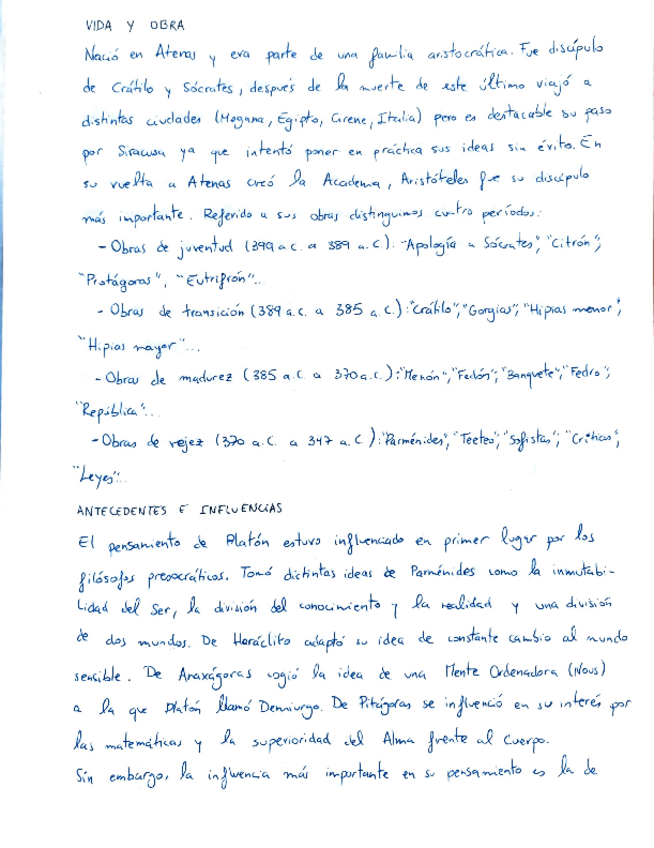 VIDA Y OBRA
Nació en Atenas y era parte de una familia aristocrática. Fue discípulo
de Crátilo y Sócrates, después de la muerte de este último viajó a
distintas ciudades (Megana, Egipto, Cirene, Italia) pero es destacable su paso
por Siracusa ya que intentó poner en práctica sus ideas sin éxito. En
su vuelta a Atenas creó la Academia, Aristóteles fue su discípulo
más importante. Referido a sus obras distinguimos cuatro períodos:
- Obras de juventud (399 a.C. a 389 a.C.): "Apología a Sócrates", "Citrón",
"Protágoras", "Eutrifrón"...
- Obras de transición (389 a.C. a 385 a.C.): "Crátilo", "Gorgias", "Hipias menor",
"Hipias mayor"...
- Obras de madurez (385 a.C. a 370 a.C.): "Menón", "Fedón", "Banquete", "Fedro",
"República"...
- Obras de vejez (370 a.C. a 347 a.C.): "Parménides", "Teeteo", "Sofistas", "Critias",
"Leyes"...
ANTECEDENTES E INFLUENCIAS
El pensamiento de Platón estuvo influenciado en primer lugar por los
filósofos presocráticos. Tomó distintas ideas de Parménides como la inmutabi-
lidad del Ser, la división del conocimiento y la realidad y una división
de dos mundos. De Heráclito adaptó su idea de constante cambio al mundo
sensible. De Anaxágoras cogió la idea de una Mente Ordenadora (Nous)
a la que Platón llamó Demiurgo. De Pitágoras se influenció en su interés por
las matemáticas y la superioridad del Alma frente al Cuerpo.
Sin embargo, la influencia más importante en su pensamiento es la de